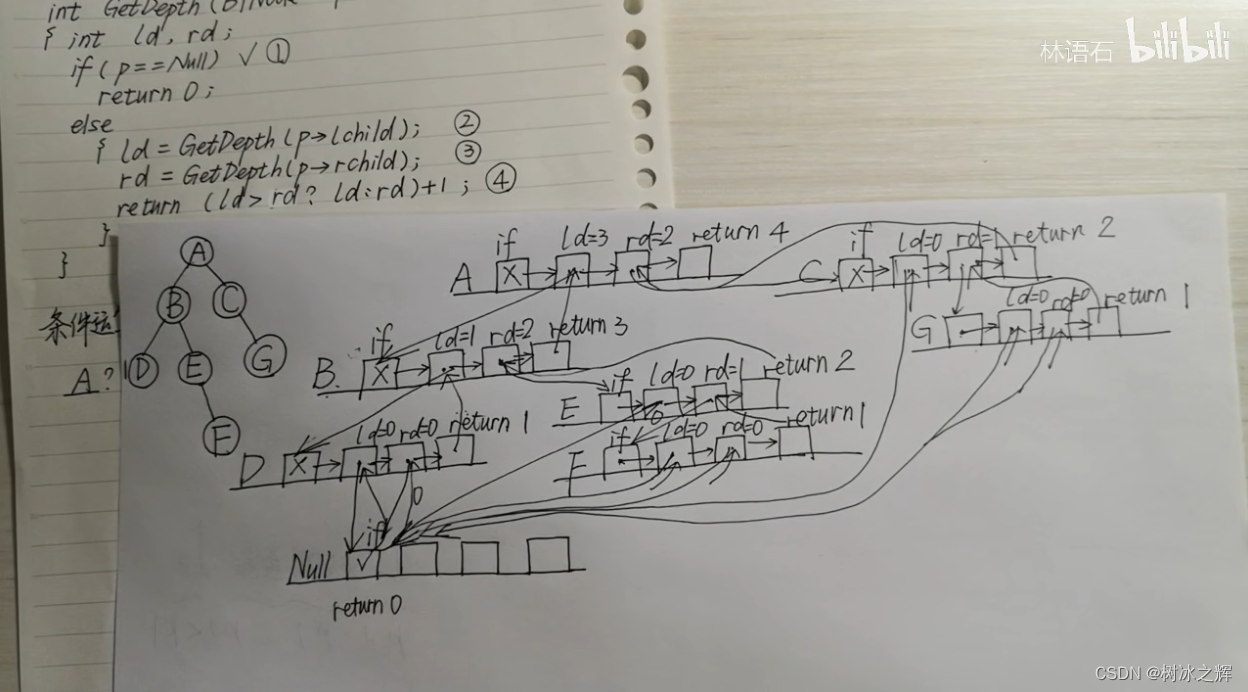 int GetDepth (
{ int ld, rd;
if (p==Null) √ ①
return 0;
else
{ ld = GetDepth (p→lchild); ②
rd = GetDepth(p→rchild); ③
return (ld> rd? ld:rd)+1 ; ④
}
}
条件运
A?
A
B C
D E G
F
if ld=3 rd=2 return 4
A X
if ld=0 rd=1 return 2
C X
ld=0 rd=0 return 1
G
if ld=1 rd=2 return 3
B. X
if ld=0 rd=1 return 2
E
ld=0 rd=0 return 1
D X
if ld=0 rd=0 return 1
F
0
if
Null √
return 0
林语石 bilibili
CSDN @树冰之辉